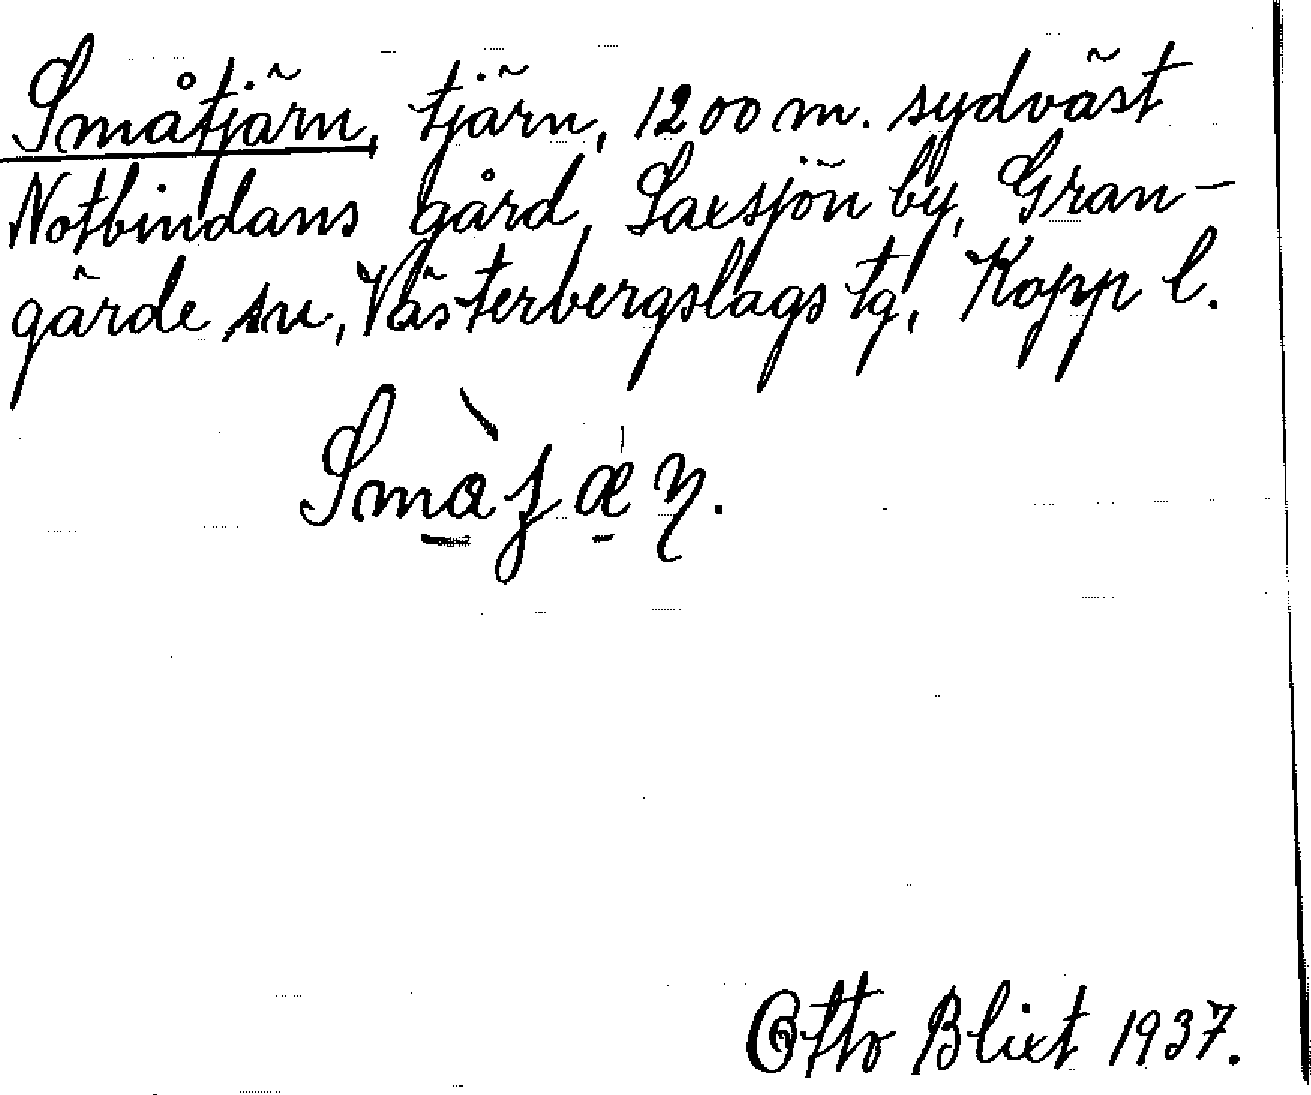 Småtjärn, tjärn, 1200 m. sydväst
Notbindans gård, Saxsjön by, Gran-
gärde sn, Västerbergslags tg, Kopp l.
Otto Blixt 1937.